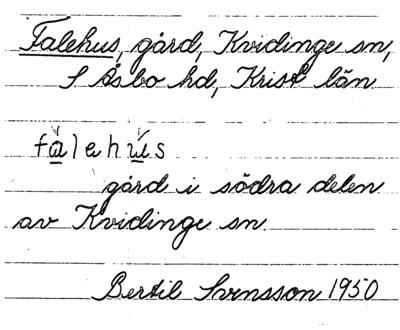 Falehus, gård, Kvidinge sn,
S Åsbo hd, Krist län
fàlehùs
gård i södra delen
av Kvidinge sn
Bertil Svensson 1950